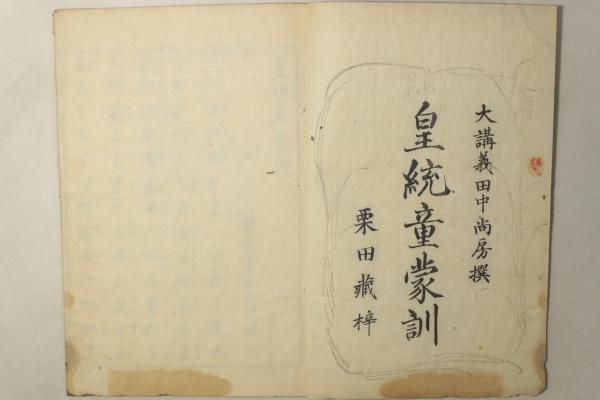 大講義田中尚房撰
皇統童蒙訓
栗田藏梓